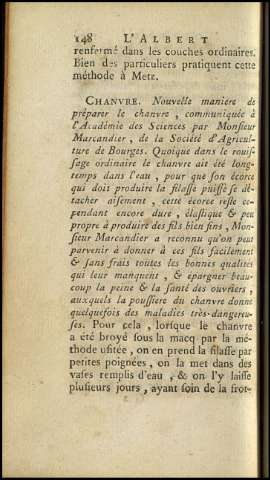 148 L'ALBERT
renfermé dans les couches ordinaires.
Bien des particuliers pratiquent cette
méthode à Metz.
CHANVRE. Nouvelle maniere de
préparer le chanvre, communiquée à
l'Académie des Sciences par Monsieur
Marcandier, de la Société d'Agricul-
ture de Bourges. Quoique dans le rouis-
sage ordinaire le chanvre ait été long-
temps dans l'eau, pour que son écorce
qui doit produire la filasse puisse se dé-
tacher aisement, cette écorce reste ce-
pendant encore dure, élastique & peu
propre à produire des fils bien fins, Mon-
sieur Marcandier a reconnu qu'on peut
parvenir à donner à ces fils facilement
& sans frais toutes les bonnes qualités
qui leur manquent, & épargner beau-
coup la peine & la santé des ouvriers,
auxquels la poussiere du chanvre donne
quelquefois des maladies très-dangereu-
ses. Pour cela, lorsque le chanvre
a été broyé sous la macq par la mé-
thode usitée, on en prend la filasse par
petites poignées, on la met dans des
vases remplis d'eau, & on l'y laisse
plusieurs jours, ayant soin de la frot-